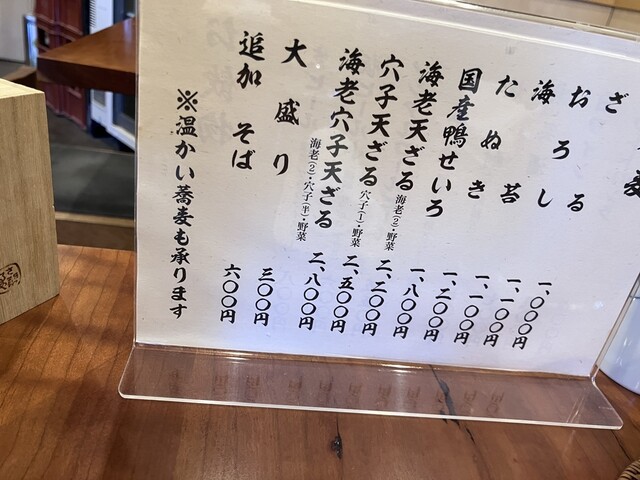 麦
ざる 一、〇〇〇円
おろし 一、一〇〇円
海苔 一、一〇〇円
たぬき 一、二〇〇円
国産鴨せいろ 一、八〇〇円
海老天ざる 海老(2)・野菜 二、二〇〇円
穴子天ざる 穴子(1)・野菜 二、五〇〇円
海老穴子天ざる 海老(2)・穴子(半)・野菜 二、八〇〇円
大盛り 三〇〇円
追加そば 六〇〇円
※温かい蕎麦も承ります